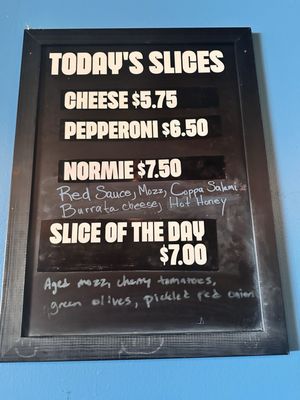 TODAY'S SLICES
CHEESE $5.75
PEPPERONI $6.50
NORMIE $7.50
Red Sauce, Mozz, Coppa Salami
Burrata cheese, Hot Honey
SLICE OF THE DAY
$7.00
Aged mozz, cherry tomatoes,
green olives, pickled red onion